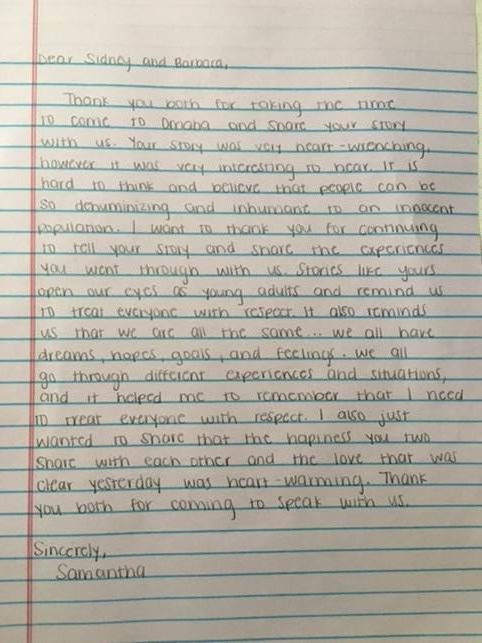 Dear Sidney and Barbara,
Thank you both for taking the time
to come to Omaha and share your story
with us. Your story was very heart-wrenching,
however it was very interesting to hear. It is
hard to think and believe that people can be
so dehuminizing and inhumane to an innocent
population. I want to thank you for continuing
to tell your story and share the experiences
you went through with us. Stories like yours
open our eyes as young adults and remind us
to treat everyone with respect. It also reminds
us that we are all the same... we all have
dreams, hopes, goals, and feelings. We all
go through different experiences and situations,
and it helped me to remember that I need
to treat everyone with respect. I also just
wanted to share that the hapiness you two
share with each other and the love that was
clear yesterday was heart-warming. Thank
you both for coming to speak with us.
Sincerely,
Samantha